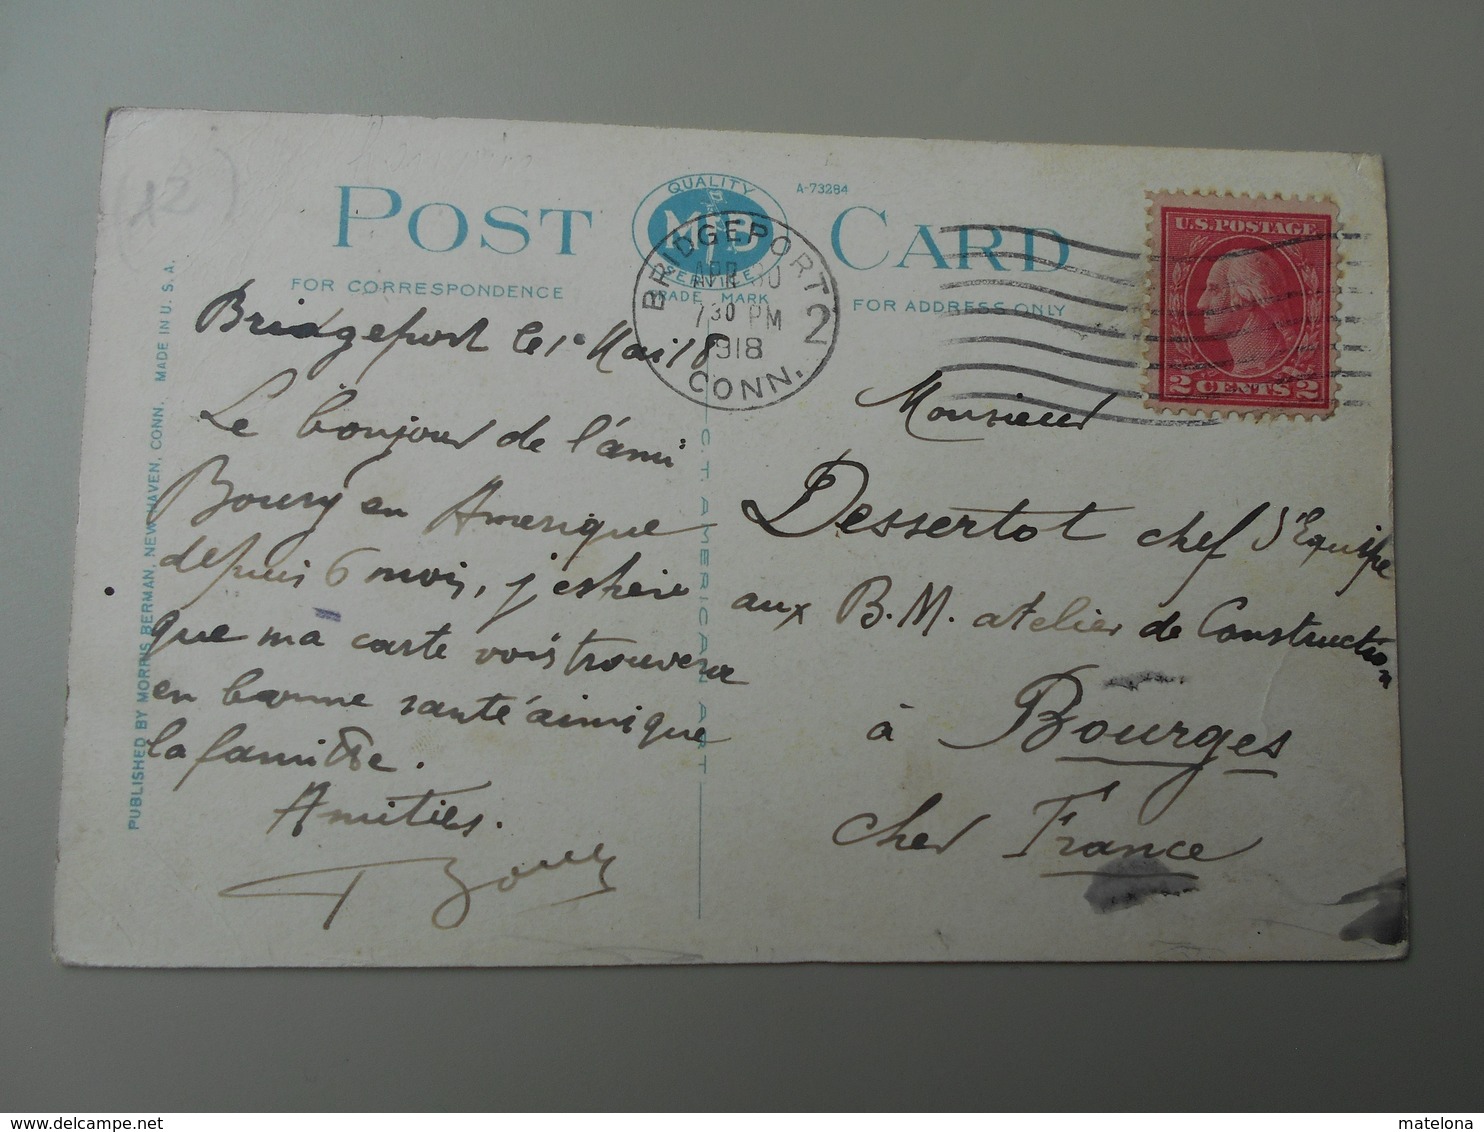 (12)
POST CARD
QUALITY
MB
SERVICE
TRADE MARK
A-73284
FOR CORRESPONDENCE
FOR ADDRESS ONLY
BRIDGEPORT 2
APR 30
7 30 PM
1918
CONN.
U.S. POSTAGE
2 CENTS 2
PUBLISHED BY MORRIS BERMAN, NEW HAVEN, CONN. MADE IN U.S.A.
C.T. AMERICAN ART
Bridgeport le 1e Mai 18
Le bonjour de l'ami
Boury en Amerique
depuis 6 mois, j'espère
que ma carte vois trouvera
en bonne santé ainsi que
la famille.
Amitiés.
Boury
Monsieur
Dessertot chef d'Equipe
aux B.M. atelier de Construction
à Bourges
Cher France
matelona